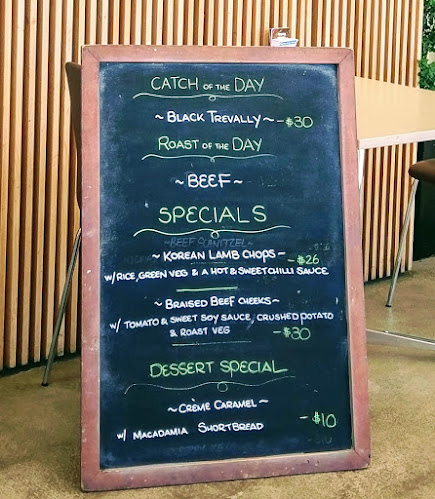 CATCH OF THE DAY
~ BLACK TREVALLY ~ -$30
ROAST OF THE DAY
~ BEEF ~
SPECIALS
~ BEEF SCHNITZEL ~
~ KOREAN LAMB CHOPS ~ -$26
W/ RICE, GREEN VEG & A HOT & SWEET CHILLI SAUCE
~ BRAISED BEEF CHEEKS ~
W/ TOMATO & SWEET SOY SAUCE, CRUSHED POTATO
& ROAST VEG -$30
DESSERT SPECIAL
~ CRÈME CARAMEL ~
W/ MACADAMIA SHORTBREAD -$10